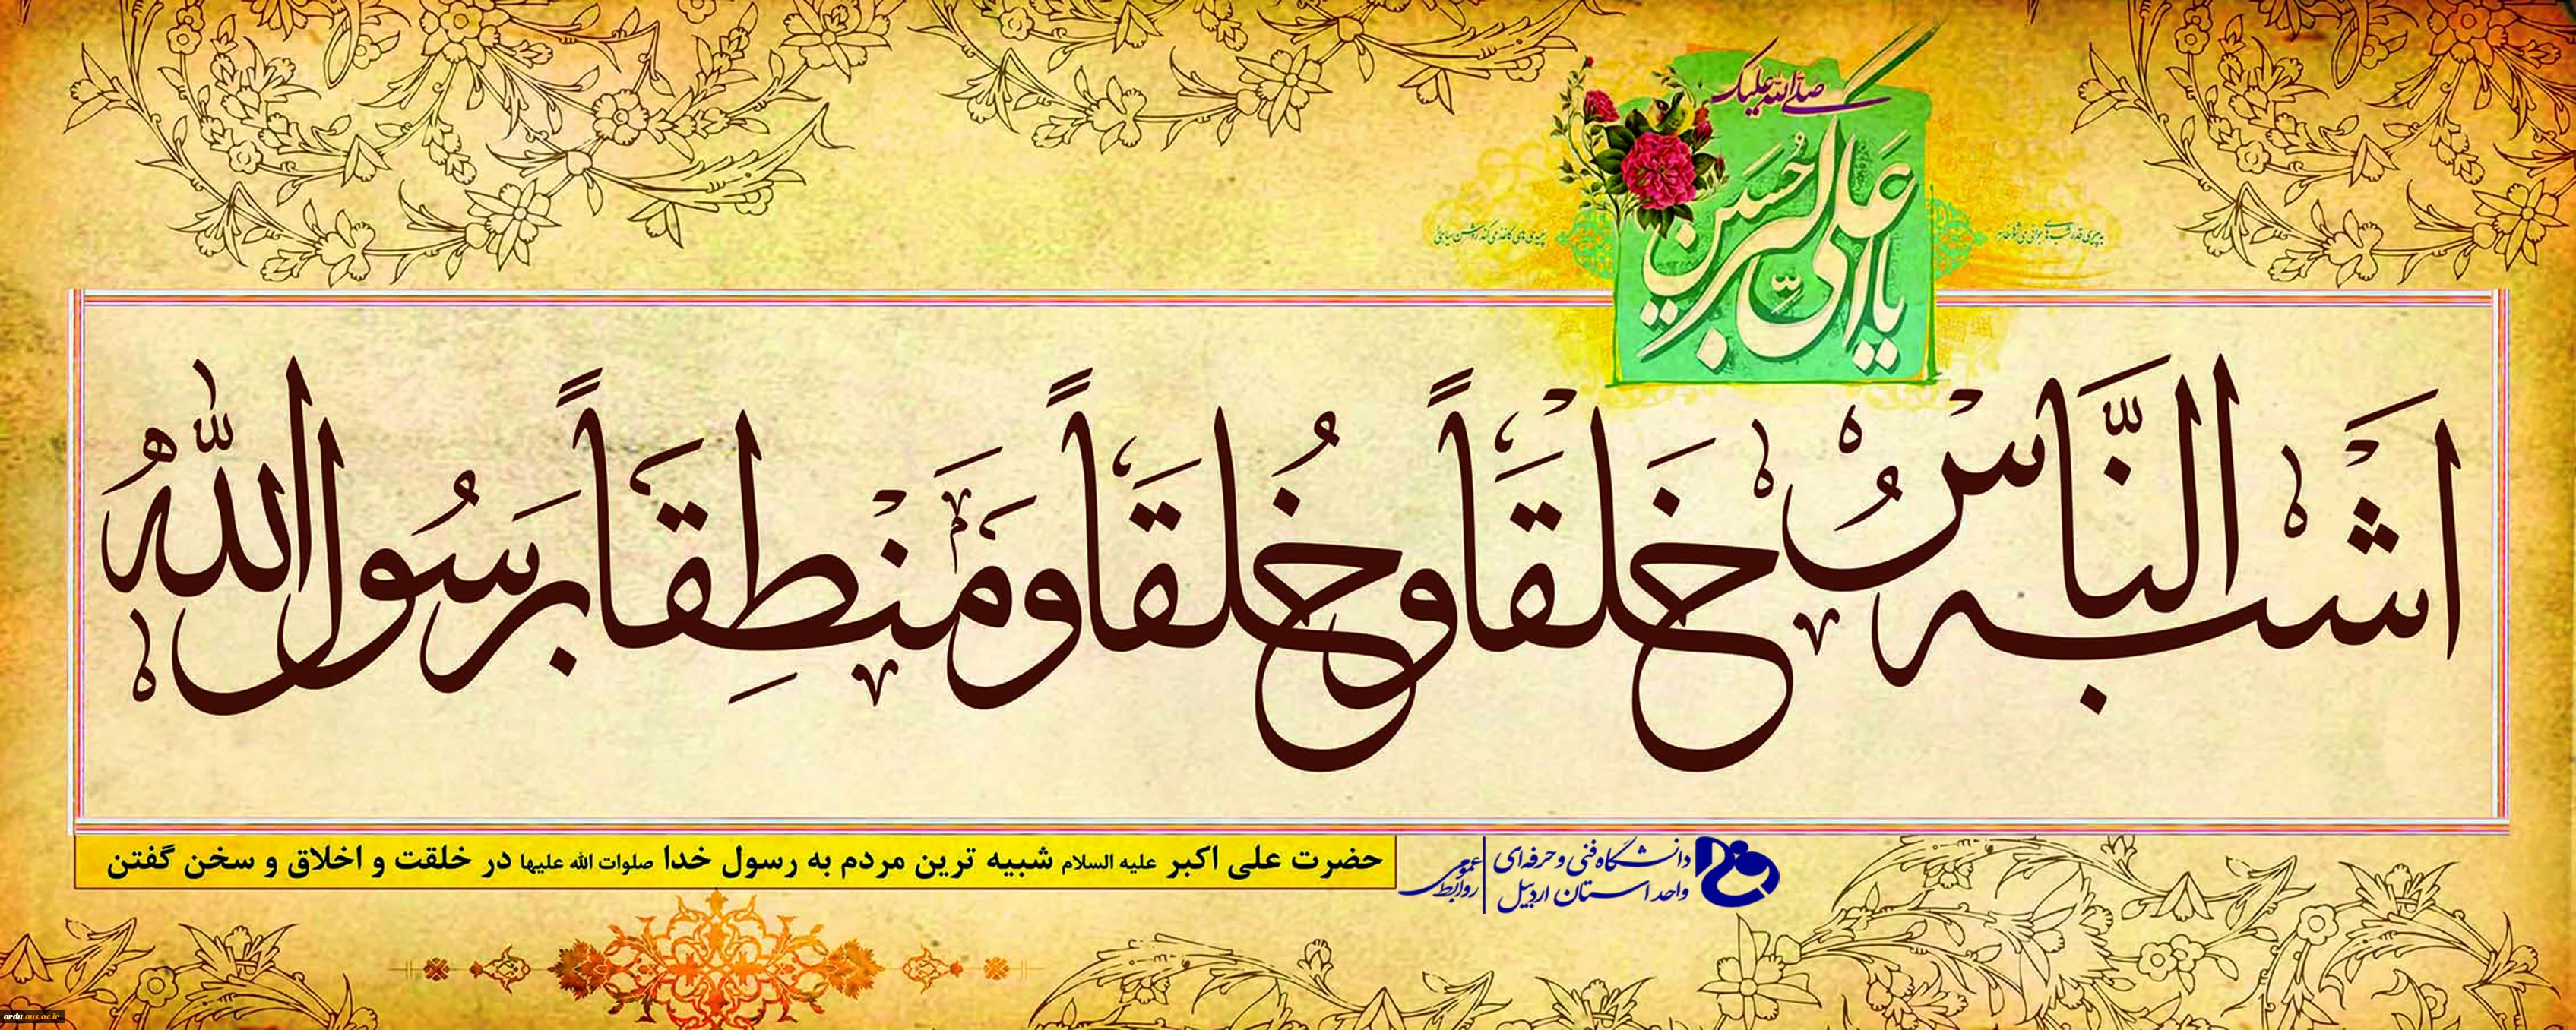 صلی الله علیک
یا علی اکبر حسین
اَشبَه النّاسُ خَلقَاً وَ خُلقَاً وَ مَنْطِقَاً بِرَسُول اللهُ
حضرت علی اکبر علیه السلام شبیه ترین مردم به رسول خدا صلوات الله علیها در خلقت و اخلاق و سخن گفتن
دانشگاه فنی و حرفه‌ای
واحد استان اردبیل
روابط عمومی
ardu.nus.ac.ir